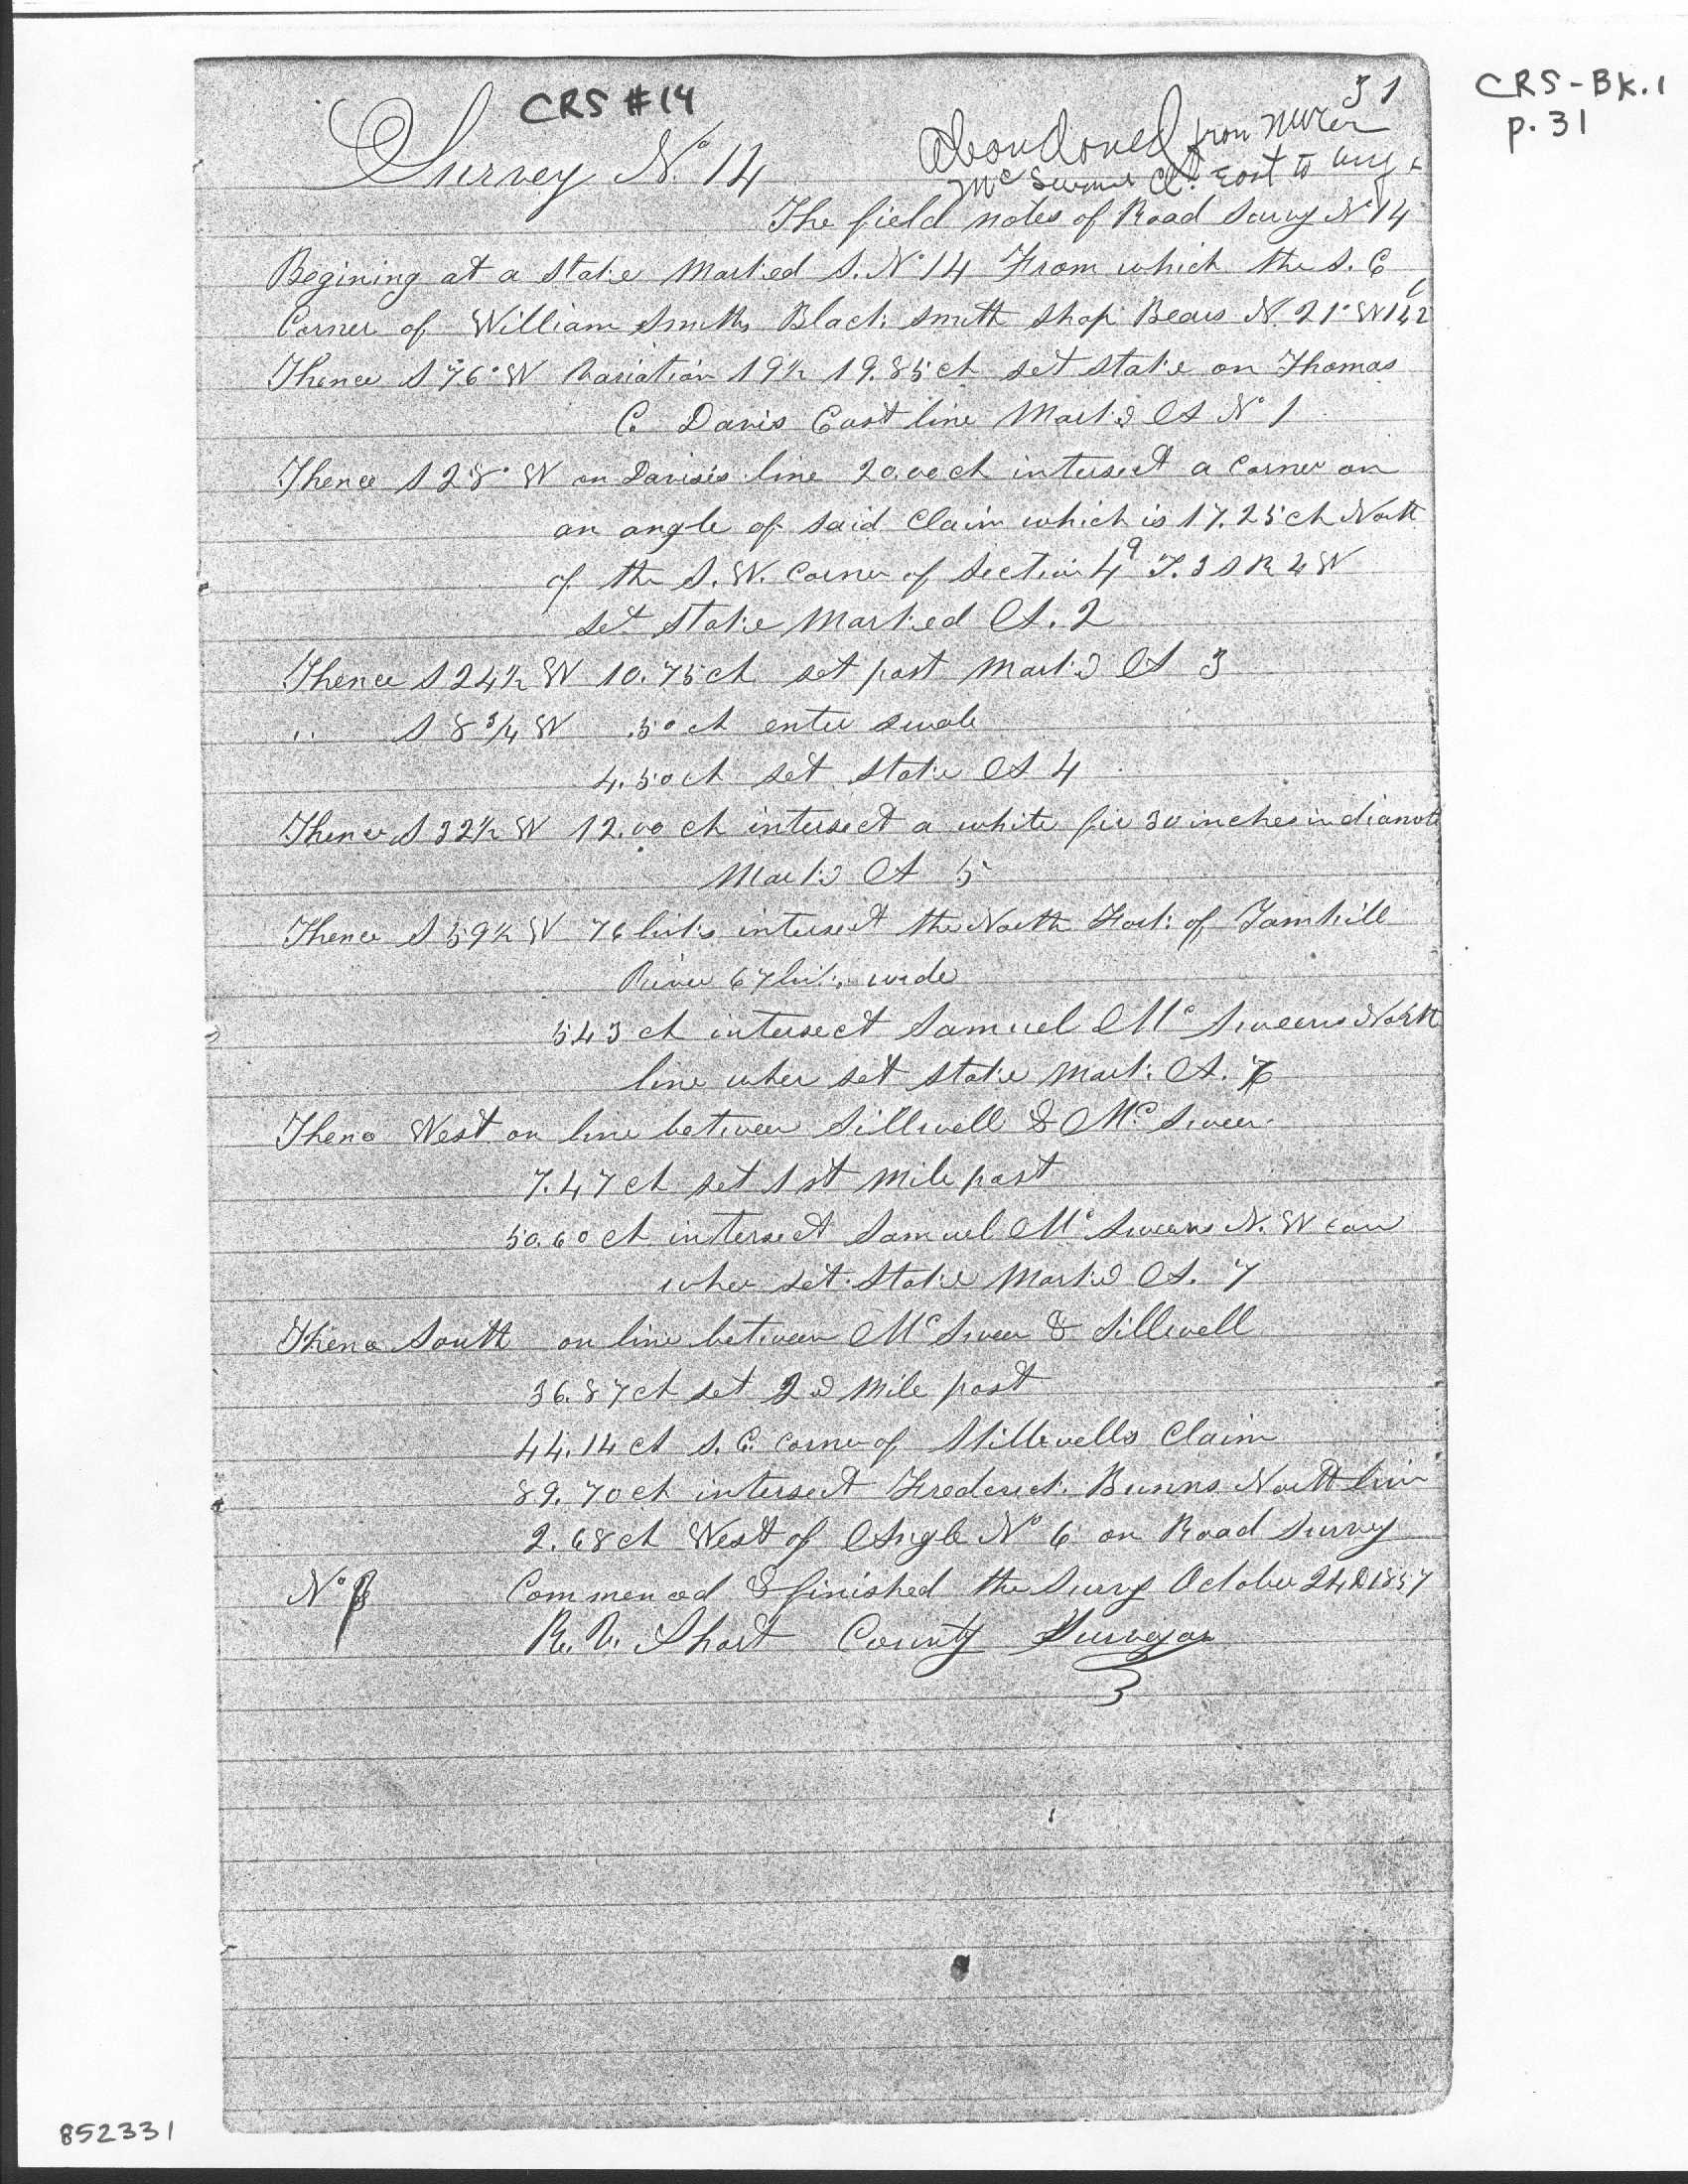 CRS-Bk.1
p. 31
31
CRS #14
Survey No 14
Abandoned from NW Cor
McSweens Cl. East to
The field notes of Road Survy No 14
Begining at a Stake Marked S. No 14 From which the S. E
Corner of William Smiths Black smith Shop Bears N. 21° W 142
Thence S 76° W Variation 19½ 19.85 ch set stake on Thomas
C. Davis East line Markd A No 1
Thence S 28° W on Davises line 20.00 ch intersect a Corner on
an angle of said Claim which is 17.25 ch North
of the S. W. Corner of Section 4 T. 3 S R 4 W
set Stake Marked A. 2
Thence S 24½ W 10.75 ch set post Markd A 3
" S 8¾ W .50 ch enter swale
4.50 ch set stake A 4
Thence S 32½ W 12.00 ch intersect a white fir 30 inches in
Markd A 5
Thence S 59½ W 76 links intersect the North Fork of Yamhill
River 67 links wide
5.43 ch intersect Samuel McSweens North
line wher set stake Mark A. 6
Thenc West on line between Sillwell & McSween
7.47 ch set 1st Mile post
50.60 ch intersect Samuel McSweens N. W cor
wher set Stake Markd A. 7
Thenc South on line between McSween & Sillwell
36.87 ch set 2d Mile post
44.14 ch S. E. corner of Stillwells Claim
89.70 ch intersect Frederick Bunns North line
2.68 ch West of Angle No 6 on Road Survey
No Commenced & finished the Survy October 24 1857
R. V. Short County Surveyor
852331